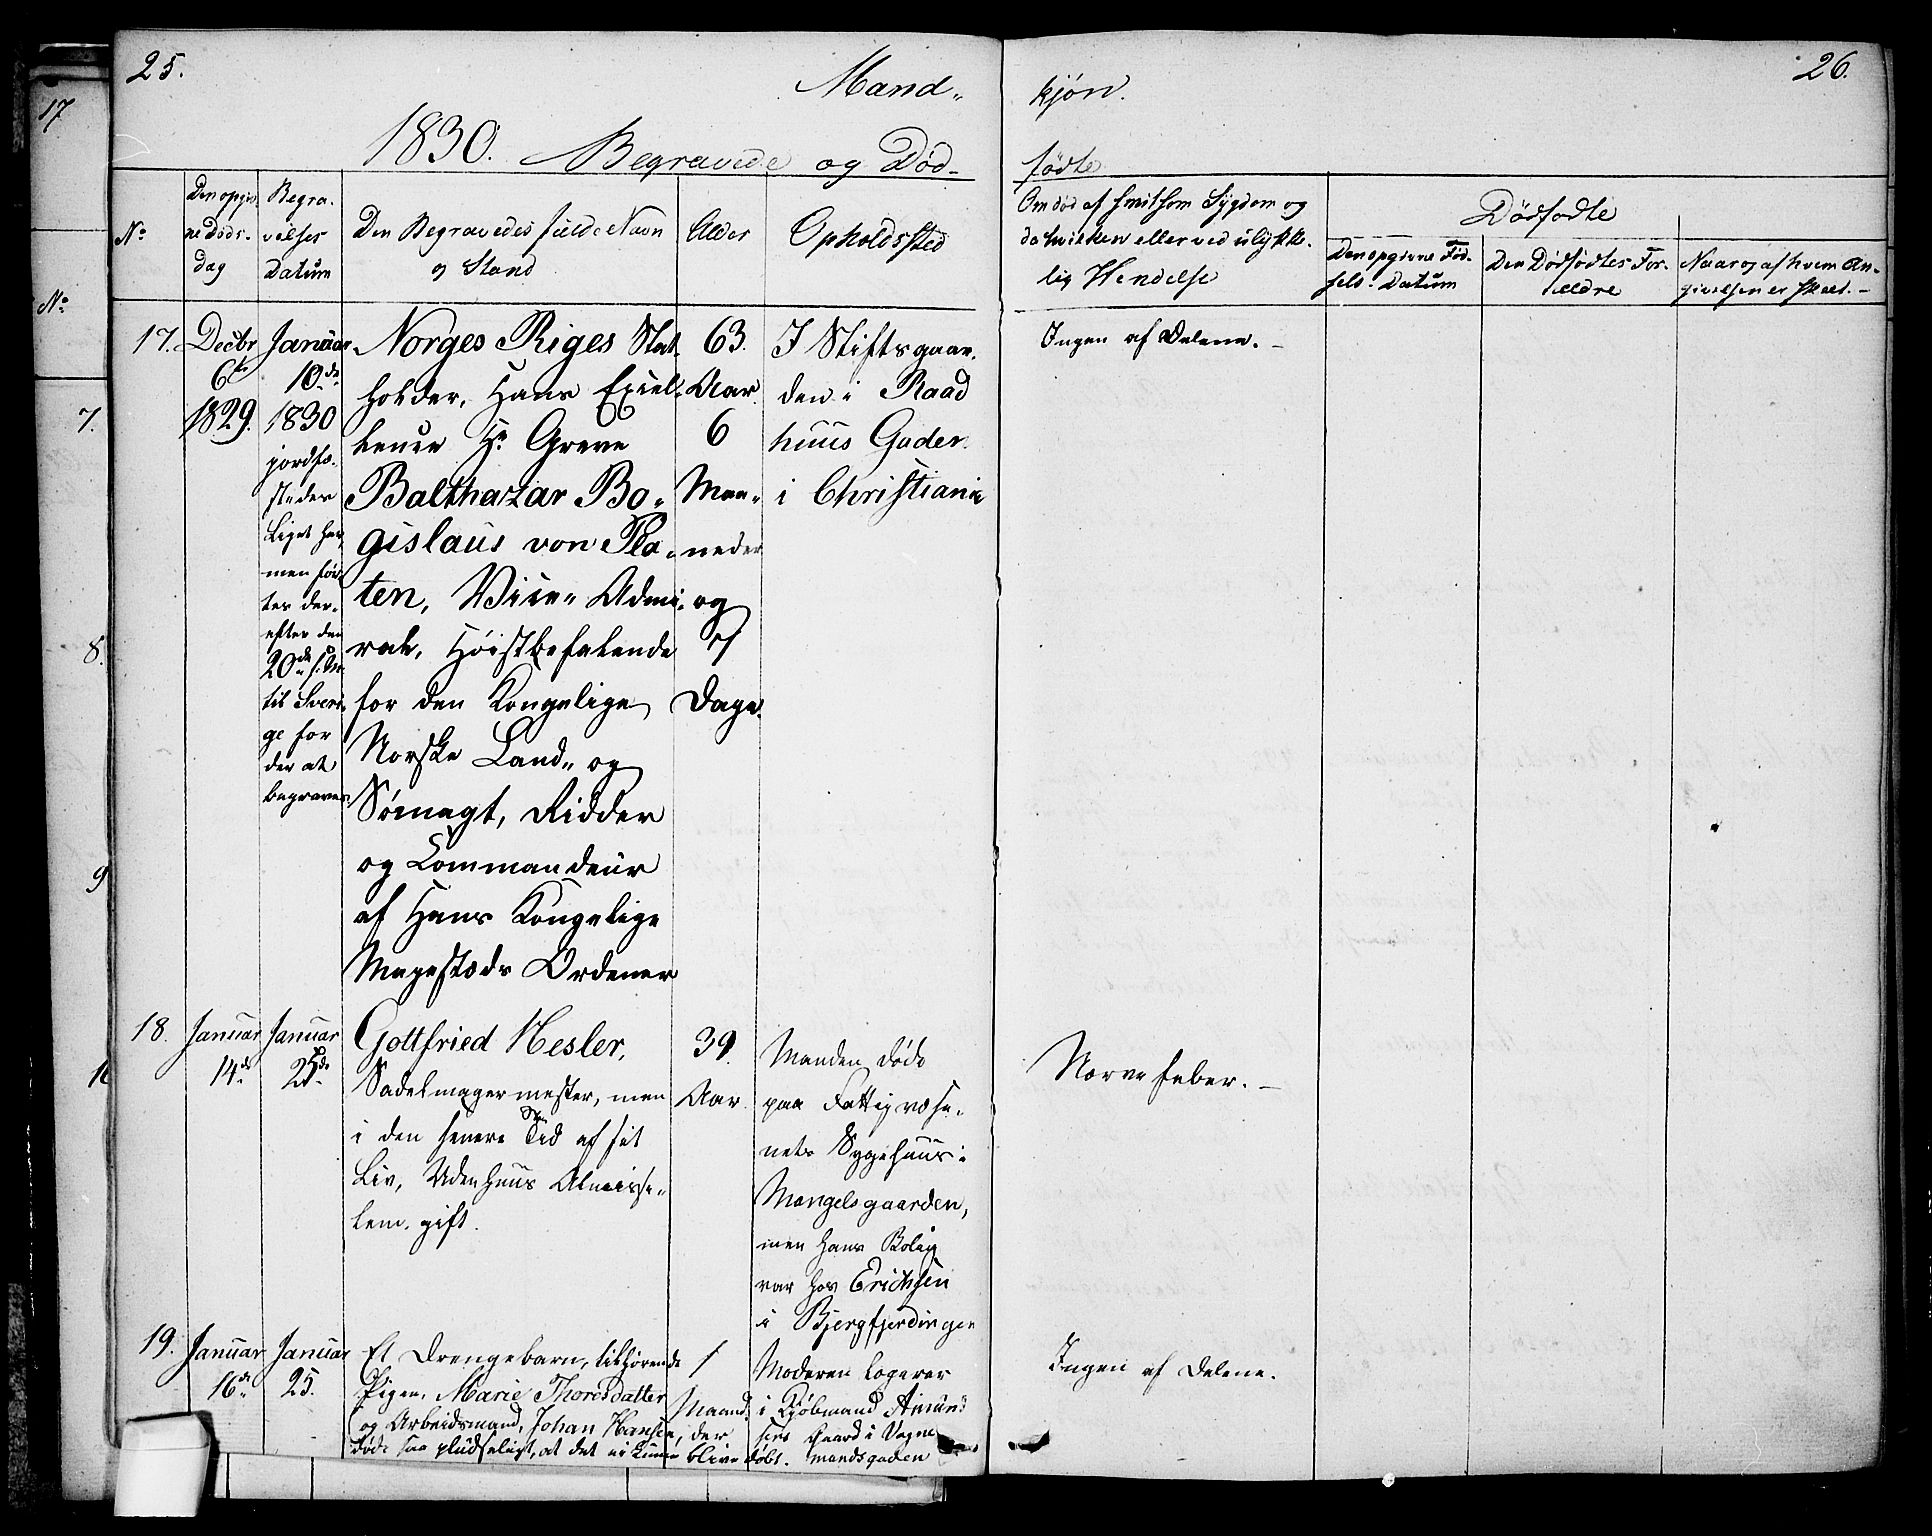 25.
Mand-
1830. Begravede og Død-
No
Den opgiv-
ne Døds-
dag
Begra-
velses
Datum
Den Begravedes fulde Navn
og Stand
Alder
Opholdssted
17.
Decbr
6te
1829.
Januar
10de
1830
jordfæ-
stedes
Liget her,
men før-
tes der-
efter den
20de s. M.
til Sveri-
ge for
der at
begraves.
Norges Riges Stat-
holder, Hans Excel-
lence Hr Greve
Balthazar Bo-
gislaus von Pla-
ten, Vice- Admi-
ral, Høistbefalende
for den Kongelige
Norske Land- og
Sömagt, Ridder
og Commandeur
af Hans Kongelige
Majestæds Ordener
63.
Aar
6
Maa-
neder
og
7
Dage.
I Stiftsgaar-
den i Raad
huus Gaden
i Christiania
18.
Januar
14de
Januar
25de
Gottfried Nesler,
Sadelmagermester, men
i den senere Tid af sit
Liv, Udenhuus Almisse-
lem. gift.
39.
Aar
Manden døde
paa Fattigvæse-
nets Sygehuus i
Mangelsgaarden,
men hans Bolig
var hos Erichsen
i Bjergfjerdingen
19.
Januar
16de
Januar
25.
Et Drengebarn, tilhørende
Pigen, Marie Thoresdatter
og Arbeidsmand, Johan Hansen, der
døde saa pludseligt, at det ei kunne blive døbt.
1
Maaned
Moderen logerer
i Kjøbmand Amund
sens Gaard i Vogne
mandsgaden
26.
kjön.
fødte
Om død af smitsom Sygdom og
da hvilken eller ved ulykke-
lig Hendelse
Dødfødte
Den opgivne Fød-
sels- Datum
Den Dødfødtes For-
ældre
Naar og af hvem An-
givelsen er skeet.-
Ingen af Delene.-
Nervefeber.-
Ingen af Delene.
17
No
7.
8.
9